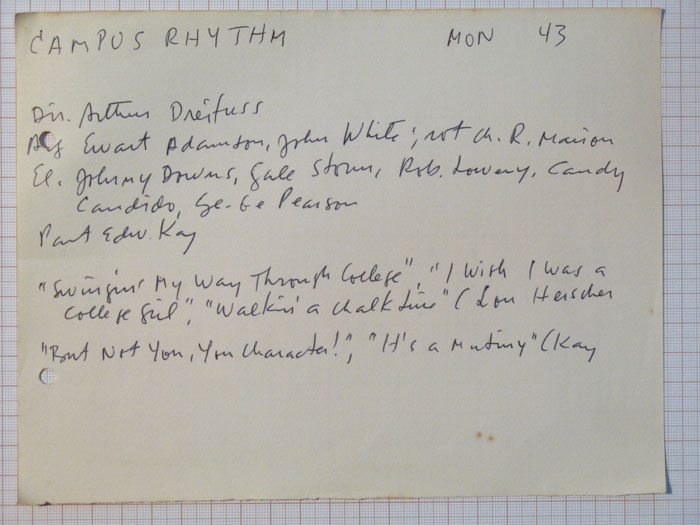 CAMPUS RHYTHM MON 43
Dir. Arthur Dreifuss
Arg Ewart Adamson, John White; not Ch. R. Marion
El. Johnny Downs, Gale Storm, Rob. Lowery, Candy
Candido, Ge-Ge Pearson
Part Edw. Kay
"Swingin' My Way Through College", "I Wish I Was a
College Girl", "Walkin' a Chalk Line" (Lou Herscher
"But Not You, You Character!", "It's a Mutiny" (Kay